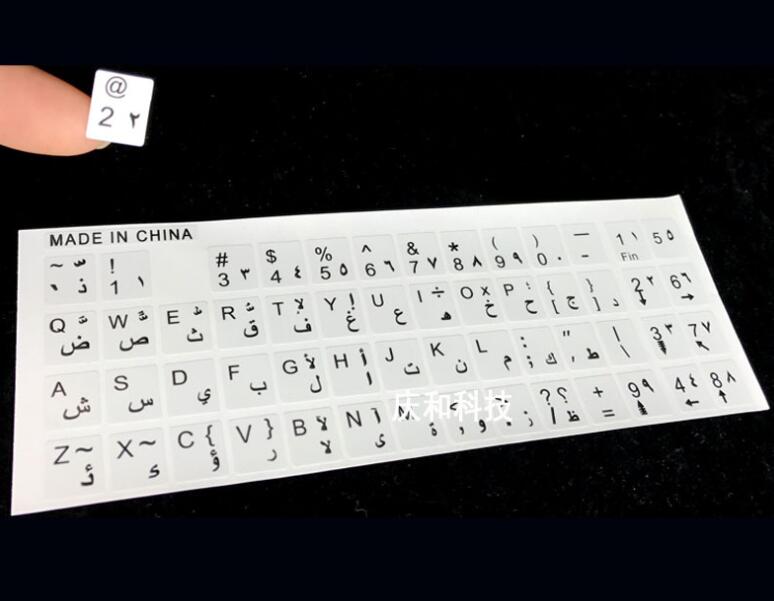 @
2 ٢
MADE IN CHINA
~ ّ ` ذ ! 1 ١ # 3 ٣ $ 4 ٤ % 5 ٥ ^ 6 ٦ & 7 ٧ * 8 ٨ ( 9 ٩ ) 0 ٠ — - 1 ١ Fin 5 ٥
Q ض W ص E ث R ق T لإ ف Y إ غ U ع I ÷ ه O × خ P ؛ ح { [ ج } ] د 2 ٢ ↓ 6 ٦ →
A ش S س D ي F ب G لأ ل H أ ا J ت K ن L م : ; ك " ' ط | \ 3 ٣ 7 ٧ ↖
Z ~ ئ X ~ ء C { ؤ V } ر B لآ لا N آ ى ة و ز ? ؟ ظ + = 9 ٩ 4 ٤ ← 8 ٨ ↑
庆和科技